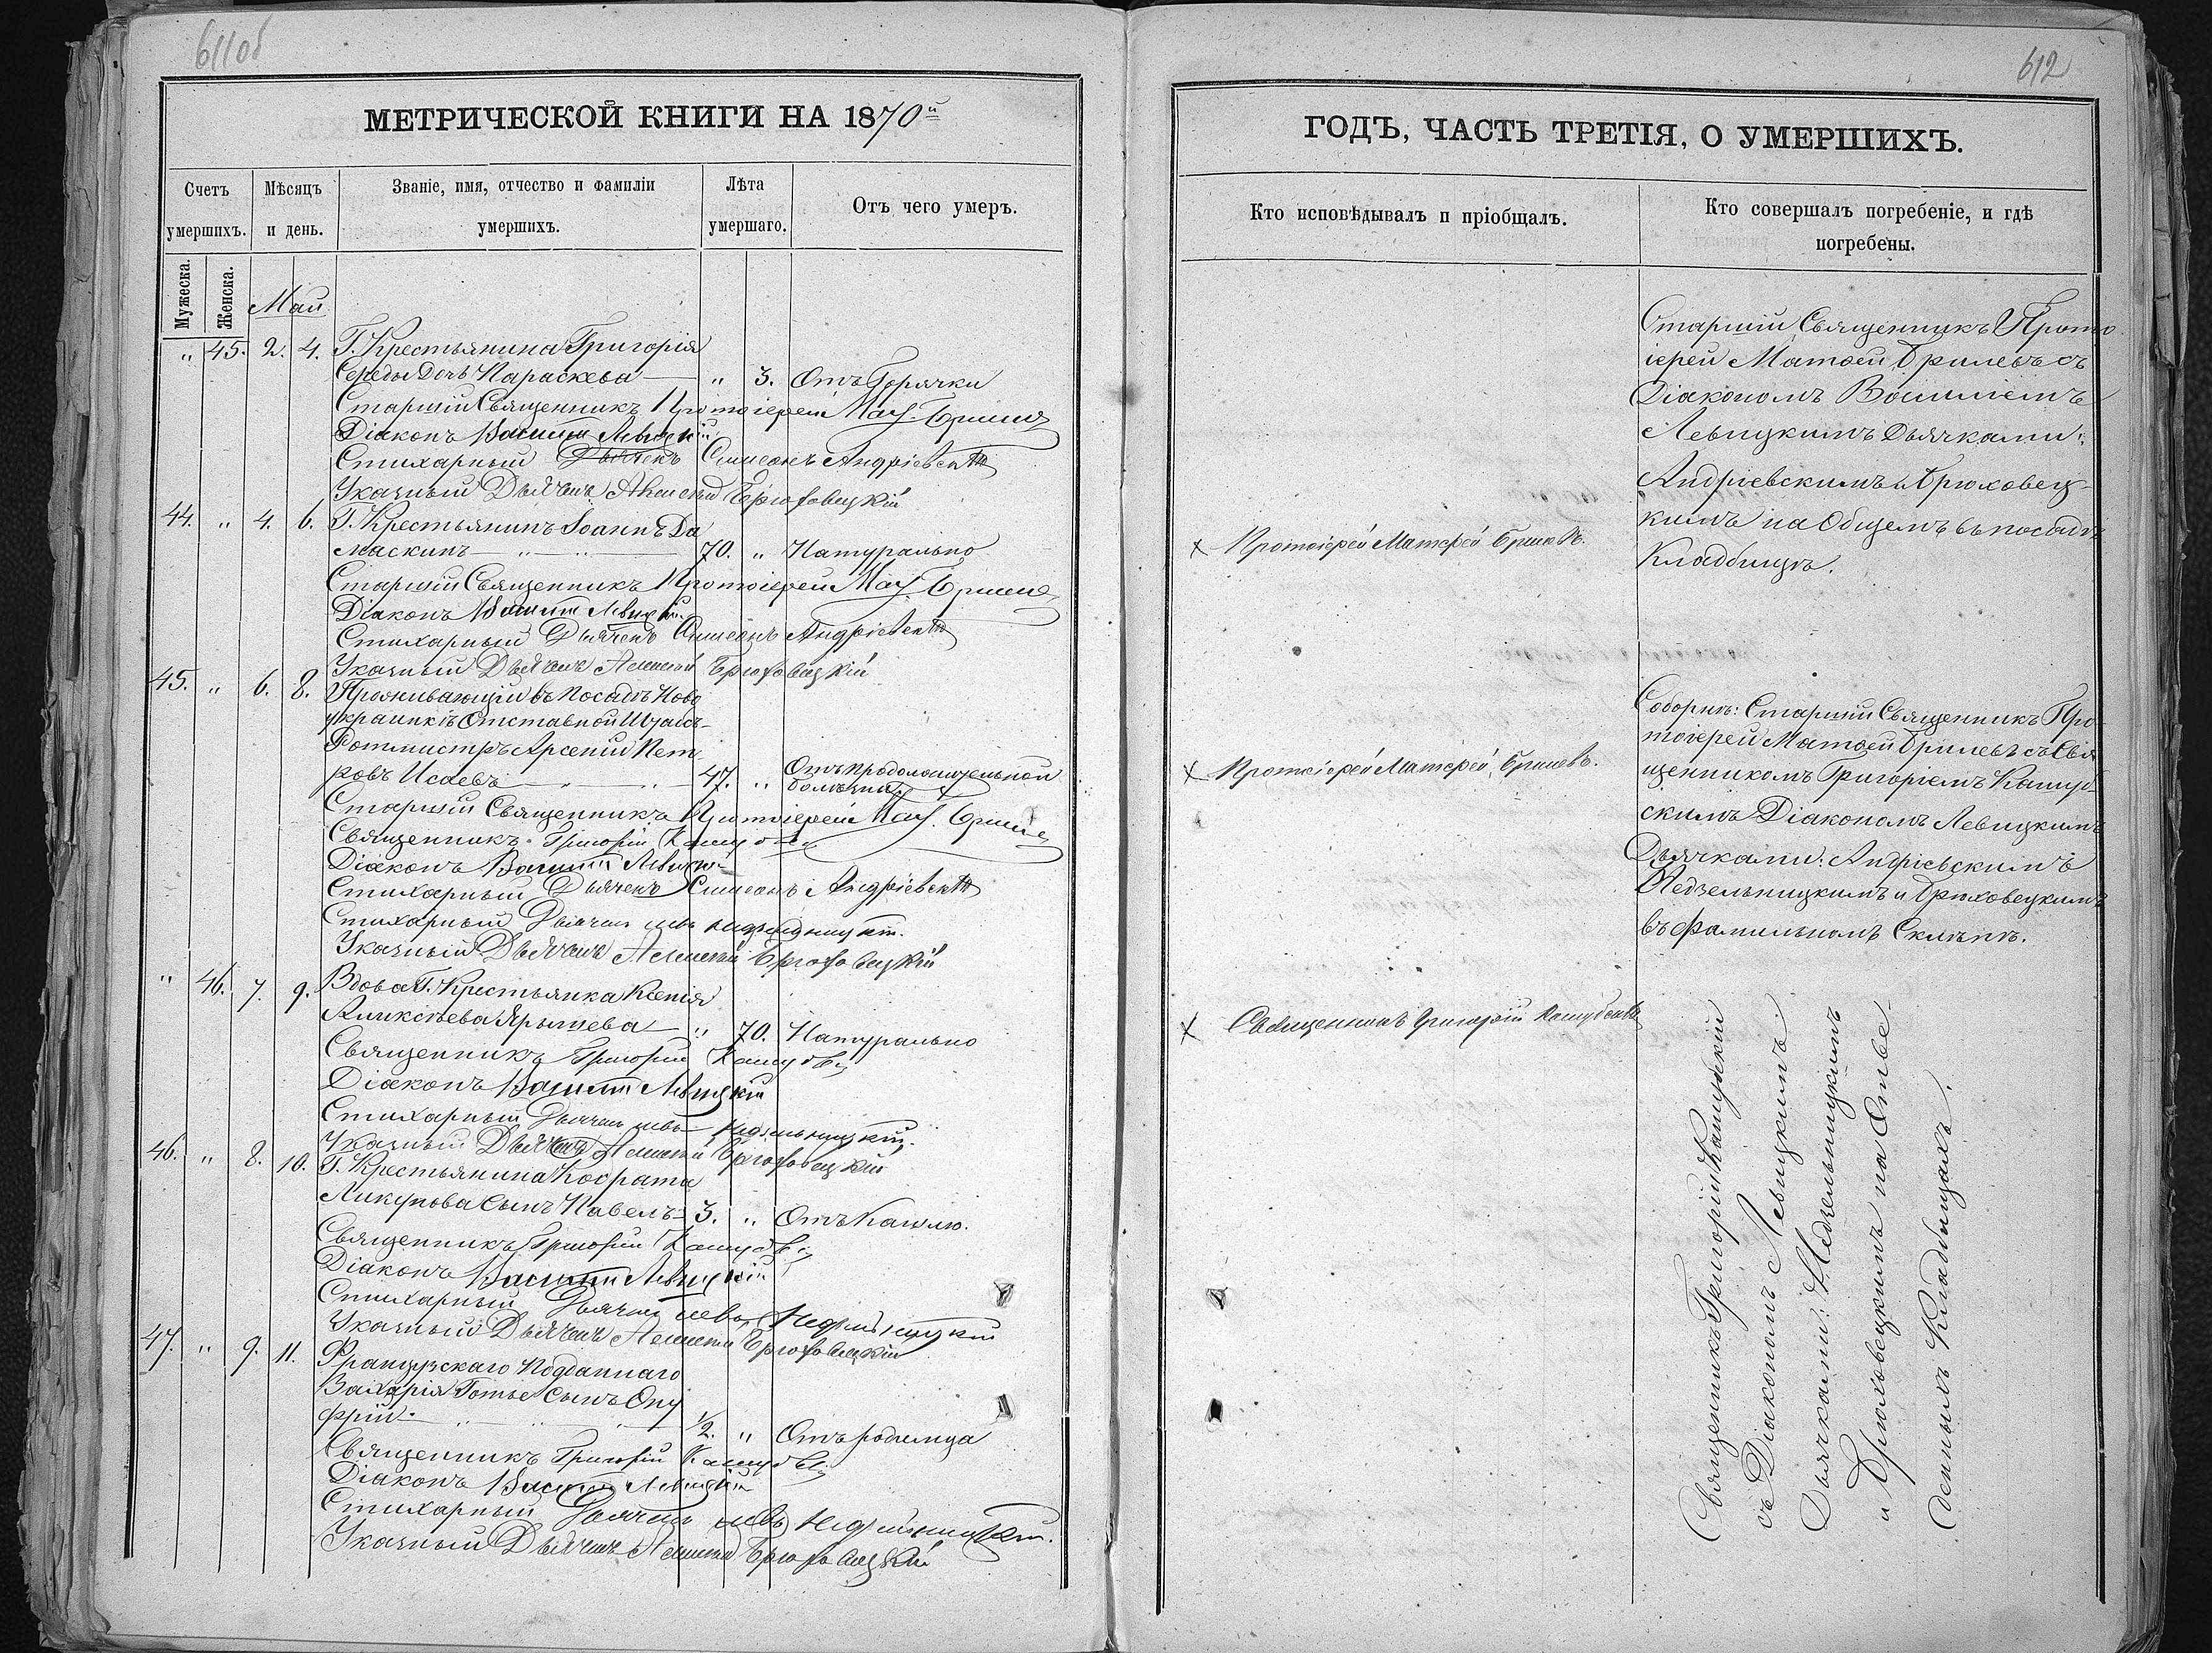 611об
МЕТРИЧЕСКОЙ КНИГИ НА 1870й
Счетъ умершихъ.
Мѣсяцъ и день.
Званіе, имя, отчество и фамиліи умершихъ.
Лѣта умершаго.
Отъ чего умеръ.
Мужеска.
Женска.
Май
„ 45. 2. 4. Г. Крестьянина Григорія
Середы дочь Параскева — „ 3. Отъ Горячки
Старшій Священникъ Протоіерей Маѳ. Брилевъ
Діаконъ Василій Левицкій
Стихарный Дьячекъ Симеонъ Андріевскій
Указный Дьячекъ Алексѣй Брюховецкій
44. „ 4. 6. Г. Крестьянинъ Іоаннъ Да
маскинъ — „ — „ — 70. „ Натурально
Старшій Священникъ Протоіерей Маѳ. Брилевъ
Діаконъ Василій Левицкій
Стихарный Дьячекъ Симеонъ Андріевскій
Указный Дьячекъ Алексѣй Брюховецкій
45. „ 6. 8. Проживающій въ Посадѣ Ново
украинкѣ Отставной Штабсъ-
Ротмистръ Арсеній Пет
ровъ Исаевъ — „ — „ — 47. „ Отъ продолжительной
болѣзни.
Старшій Священникъ Протоіерей Маѳ. Брилевъ
Священникъ Григорій
Діаконъ Василій Левицкій
Стихарный Дьячекъ Симеонъ Андріевскій
Стихарный Дьячекъ Левъ Недзельницкій.
Указный Дьячекъ Алексѣй Брюховецкій
„ 46. 7. 9. Вдова Г. Крестьянка Ксенія
Алексѣева — „ 70. Натурально
Священникъ Григорій
Діаконъ Василій Левицкій
Стихарный Дьячекъ Левъ Недзельницкій.
Указный Дьячекъ Алексѣй Брюховецкій
46. „ 8. 10. Г. Крестьянина Кодрата
Ликунова сынъ Павелъ — 3. „ Отъ Кашлю.
Священникъ Григорій
Діаконъ Василій Левицкій
Стихарный Дьячекъ Левъ Недзельницкій
Указный Дьячекъ Алексѣй Брюховецкій
47. „ 9. 11. Французскаго Подданнаго
Захарія Готье сынъ Ону
фрій. — „ — „ — 1/2. „ Отъ родимца
Священникъ Григорій
Діаконъ Василій Левицкій
Стихарный Дьячекъ Левъ Недзельницкій.
Указный Дьячекъ Алексѣй Брюховецкій
612
ГОДЪ, ЧАСТЬ ТРЕТІЯ, О УМЕРШИХЪ.
Кто исповѣдывалъ и пріобщалъ.
Кто совершалъ погребеніе, и гдѣ
погребены.
Х Протоіерей Матѳей Брилевъ.
Х Протоіерей Матѳей Брилевъ.
Х Священникъ Григорій
Старшій Священникъ Прото
іерей Матѳей Брилевъ съ
Діакономъ Василіемъ
Левицкимъ Дьячками:
Андріевскимъ и Брюховец-
кимъ на Общемъ въ посадѣ
Кладбищѣ.
Соборнѣ: Старшій Священникъ Про-
тоіерей Матѳей Брилевъ съ Свя
щенникомъ Григоріемъ
скимъ Діакономъ Левицкимъ
Дьячками: Андріевскимъ
Недзельницкимъ и Брюховецкимъ
въ фамильномъ Склепѣ.
Священникъ Григорій
съ Діакономъ Левицкимъ.
Дьячками: Недзельницкимъ
и Брюховецкимъ на Отве-
денныхъ Кладбищахъ.